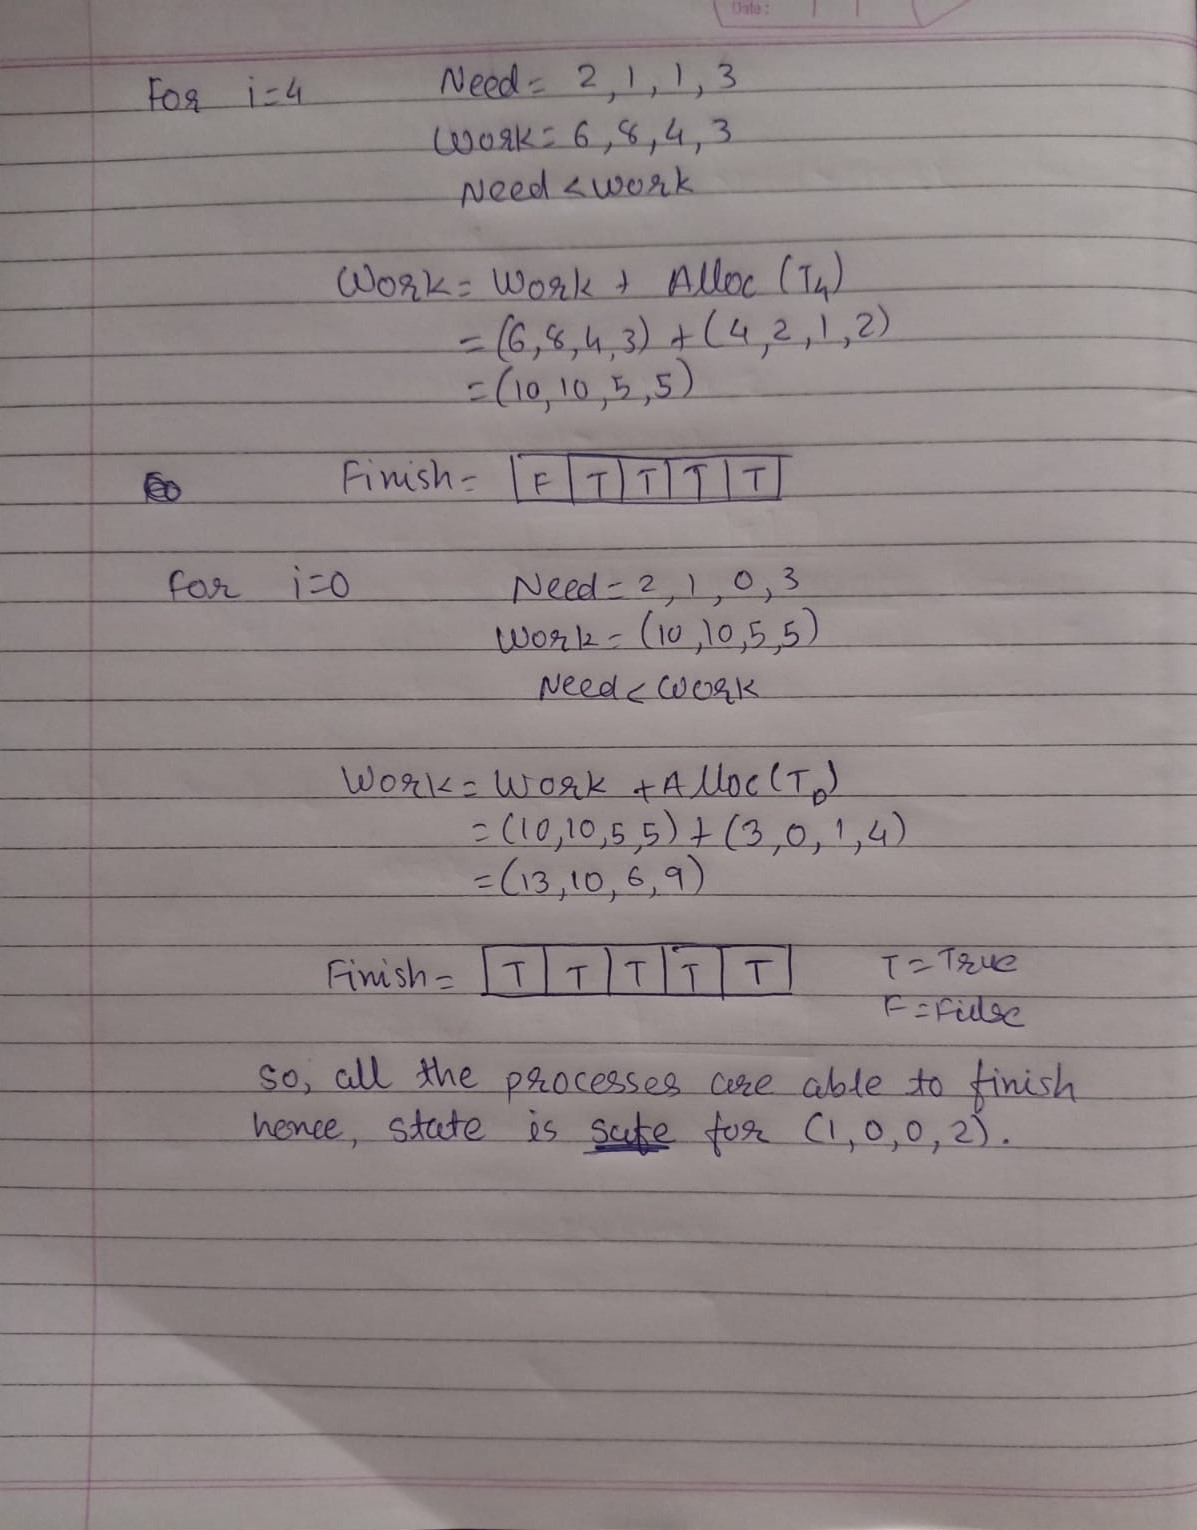 Date:
For i=4 Need= 2,1,1,3
Work= 6,8,4,3
Need < Work
Work = Work + Alloc (T4)
= (6,8,4,3) + (4,2,1,2)
= (10,10,5,5)
Finish = F T T T T
for i=0 Need = 2,1,0,3
Work = (10,10,5,5)
Need < Work
Work = Work + Alloc (T0)
= (10,10,5,5) + (3,0,1,4)
= (13,10,6,9)
Finish = T T T T T T = True
F = False
so, all the processes are able to finish
hence, state is safe for (1,0,0,2).